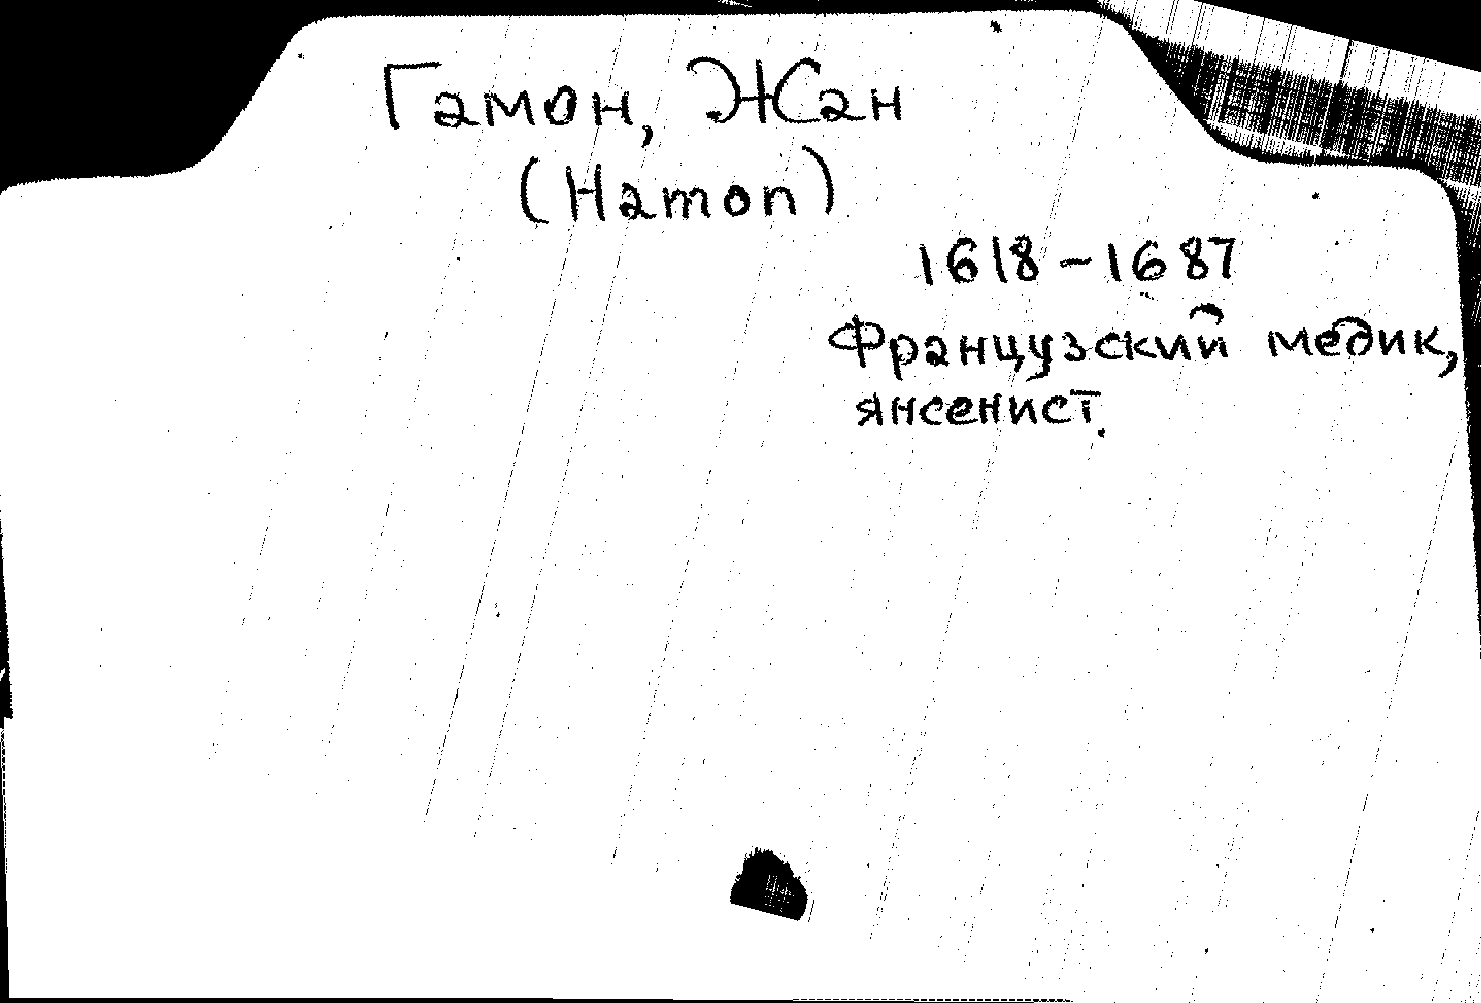 Гамон, Жан
(Hamon)
1618-1687
Французский медик,
янсенист.